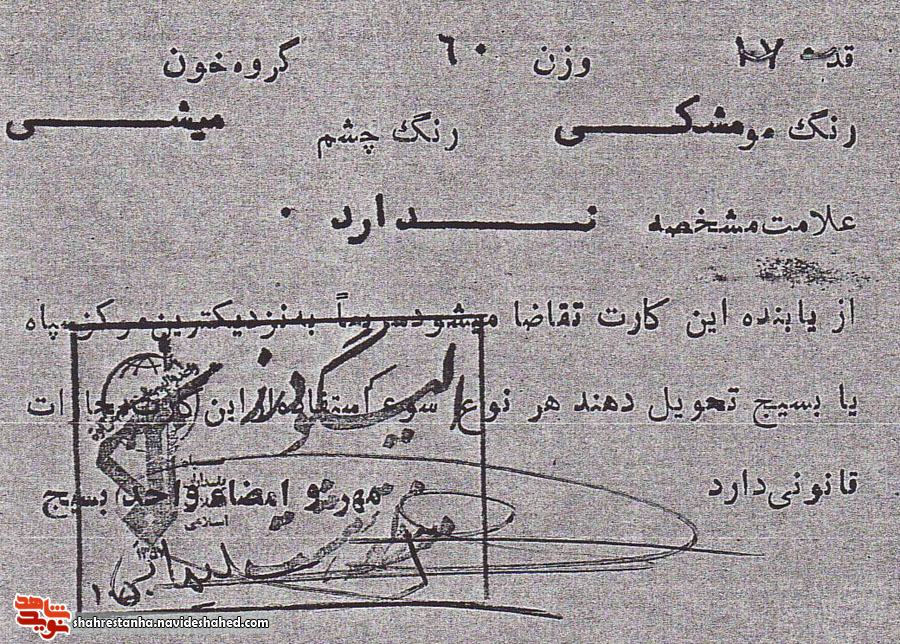 قد ۱۷ وزن ۶۰ گروه خون
رنگ مو مشکی رنگ چشم میشی
علامت مشخصه ندارد
از یابنده این کارت تقاضا میشود سریعاً به نزدیکترین مرکز سپاه
یا بسیج تحویل دهند هر نوع سوء استفاده از این کارت مجازات
قانونی دارد
مهر و امضاء واحد بسیج
سپاه
پاسداران
انقلاب
اسلامی
۱۳۵۷
شاهد
نوید
shahrestanha.navideshahed.com